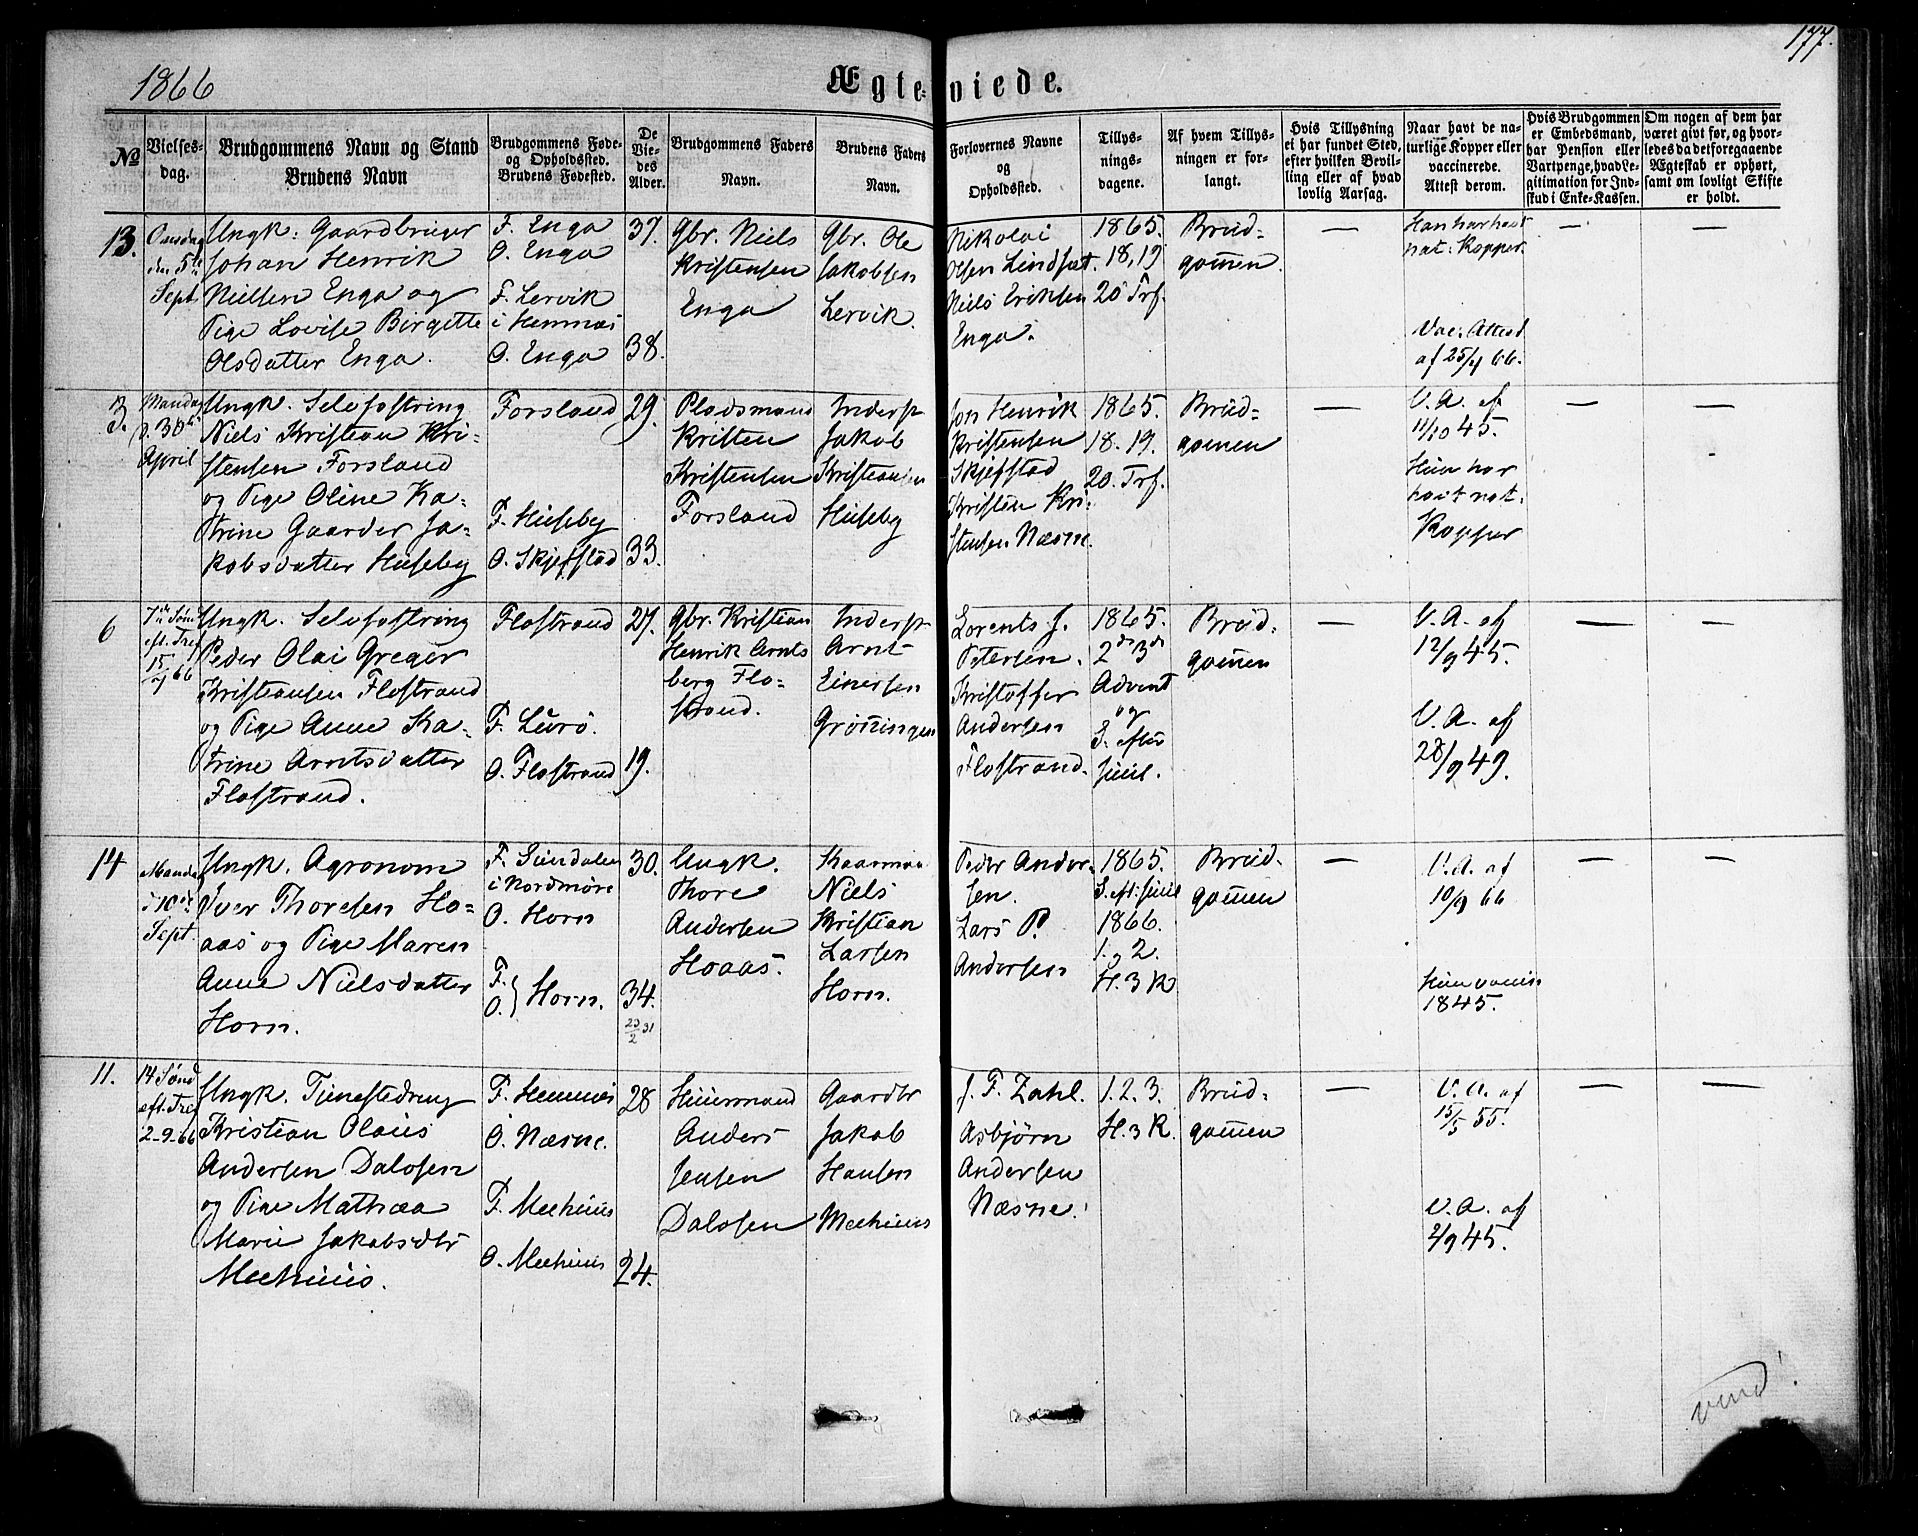 1866
Ægteviede.
177.
No
Vielses-
dag.
Brudgommens Navn og Stand
Brudens Navn
Brudgommens Føde-
og Opholdssted.
Brudens Fødested.
De
Vie-
des
Alder.
Brudgommens Faders
Navn.
Brudens Faders
Navn.
Forlovernes Navne
og
Opholdssted.
Tillys-
nings-
dagene.
Af hvem Tillys-
ningen er for-
langt.
Hvis Tillysning
ei har fundet Sted,
efter hvilken Bevil-
ling eller af hvad
lovlig Aarsag.
Naar havt de na-
turlige Kopper eller
vaccinerede.
Attest derom.
Hvis Brudgommen
er Embedsmand,
har Pension eller
Vartpenge, hvad Le-
gitimation for Ind-
skud i Enke-Kassen.
Om nogen af dem har
været givt før, og hvor-
ledes da det foregaaende
Ægteskab er ophørt,
samt om lovligt Skifte
er holdt.
13.
Onsdag
den 5te
Sept.
Ungk: Gaardbruger
Johan Henrik
Nielsen Enga og
Pige Lovise Birgitte
Olsdatter Enga.
F. Enga
O. Enga
F. Lervik
i Hemnæs
O. Enga
37.
38.
Gbr. Niels
Kristensen
Enga
Gbr. Ole
Jakobsen
Lervik.
Nikolai
Olsen Lindset.
Niels Eriksen
Enga.
1865.
18, 19
20 Trf.
Brud-
gomen.
—
Han har havt
nat: Kopper.
Vac. Attest
af 25/4 66.
—
—
3.
Mandag
d. 30te
April
Ungk. Selvfostring
Niels Kristian Kri-
stensen Forsland
og Pige Oline Ka-
trine Gaarder Ja-
kobsdatter Huseby
Forsland
F. Huseby
O. Skjefstad
29.
33.
Pladsmand
Kristen
Kristensen
Forsland
Inderst
Jakob
Kristiansen
Huseby
Jon Henrik
Kristensen
Skjefstad
Kristen Kri-
stensen Næsne.
1865.
18. 19.
20. Trf.
Brud-
gomen
—
V. A. af
11/10 45.
Hun har
havt nat.
Kopper
—
—
6
7de Sønd
eft. Tref
15/7 66
Ungk. Selvfostring
Peder Olai Greger
Kristiansen Flostrand
og Pige Anne Ka-
trine Arntsdatter
Flostrand.
Flostrand
F. Lurö.
O. Flostrand
27.
19.
Gbr. Kristian
Henrik Arnts
berg Flo-
strand.
Inderst
Arnt
Einersen
Grönningen
Lorents J.
Petersen.
Kristoffer
Andersen
Flostrand.
1865.
2den 3de
Advent
og
S. efter
Juul.
Brud-
gomen
—
V. A. af
12/9 45.
V. A. af
28/9 49.
—
—
14
Mandag
d 10de
Sept.
Ungk. Agronom
Iver Thoresen Ho-
aas og Pige Maren
Anne Nielsdatter
Horn.
F. Sundalen
i Nordmöre
O. Horn
F.
O. } Horn.
30.
34.
23/2 31
Ungk.
Thore
Andersen
Hoaas.
Niels
Kristian
Larsen
Horn.
Peder Ander-
sen.
Lars P.
Andersen
1865.
S. eft. Juul
1866.
1. g 2.
H. 3 K
Brud-
gomen
—
V. A. af
10/9 66
Hun vaccin
1845.
—
—
11.
14 Sönd
eft. Tref
2-9-66
Ungk. Tjenestedreng
Kristian Olaus
Andersen Dalosen
og Pige Mathæa
Marie Jakobsdtr
Meehuus.
F. Hemnæs
O. Næsne.
F. Meehuus
O. Meehuus
28
24.
Huusmand
Anders
Jensen
Dalosen
Gaardbr
Jakob
Hansen
Meehuus
J. F. Zahl.
Asbjörn
Andersen
Næsne.
1. 2. 3.
H. 3 K.
Brud-
gomen
—
V. A. af
15/5 55.
V. A. af
2/9 45.
—
—
vend!